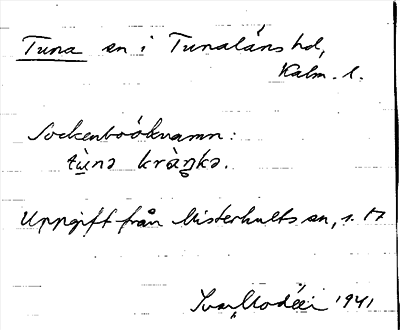 Tuna sn i Tunaläns hd,
Kalm. l.
Sockenboöknamn:
tùnə kràŋkə.
Uppgift från Misterhults sn, s. 17
Ivar Modéer 1941